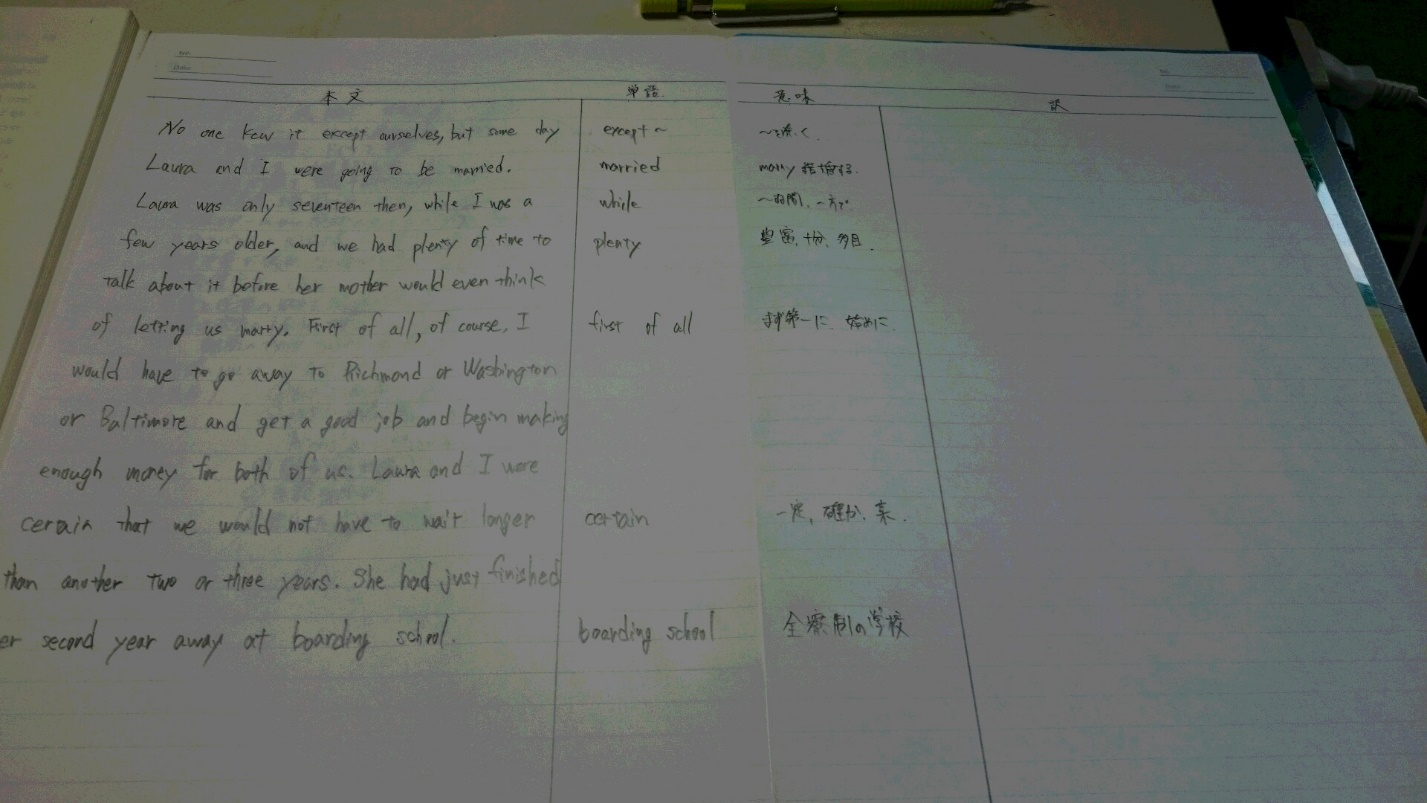 本文 単語 意味 訳
No one kew it except ourselves, but some day except ~ ~を除く.
Laura and I were going to be married. married marry 結婚する.
Laura was only seventeen then, while I was a while ~の間, 一方で
few years older, and we had plenty of time to plenty 豊富, 十分, 多目.
talk about it before her mother would even think
of letting us marry. First of all, of course, I first of all まず第一に, 始めに.
would have to go away to Richmond or Washington
or Baltimore and get a good job and begin making
enough money for both of us. Laura and I were
cerain that we would not have to wait longer certain 一定, 確か,
than another two or three years. She had just finished
er second year away at boarding school. boarding school 全寮制の学校